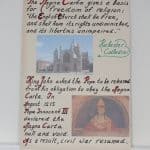 The Magna Carta gives a basis
for "freedom of religion";
"the English Church shall be free,
and shall have its rights undiminished,
and its liberties unimpaired."
Rochester
Cathedral
King John asked the Pope to be released
from the obligation to obey the Magna
Carta. In
August 1215
Pope Innocent III
declared the
Magna Carta
null and void.
As a result, civil war resumed.